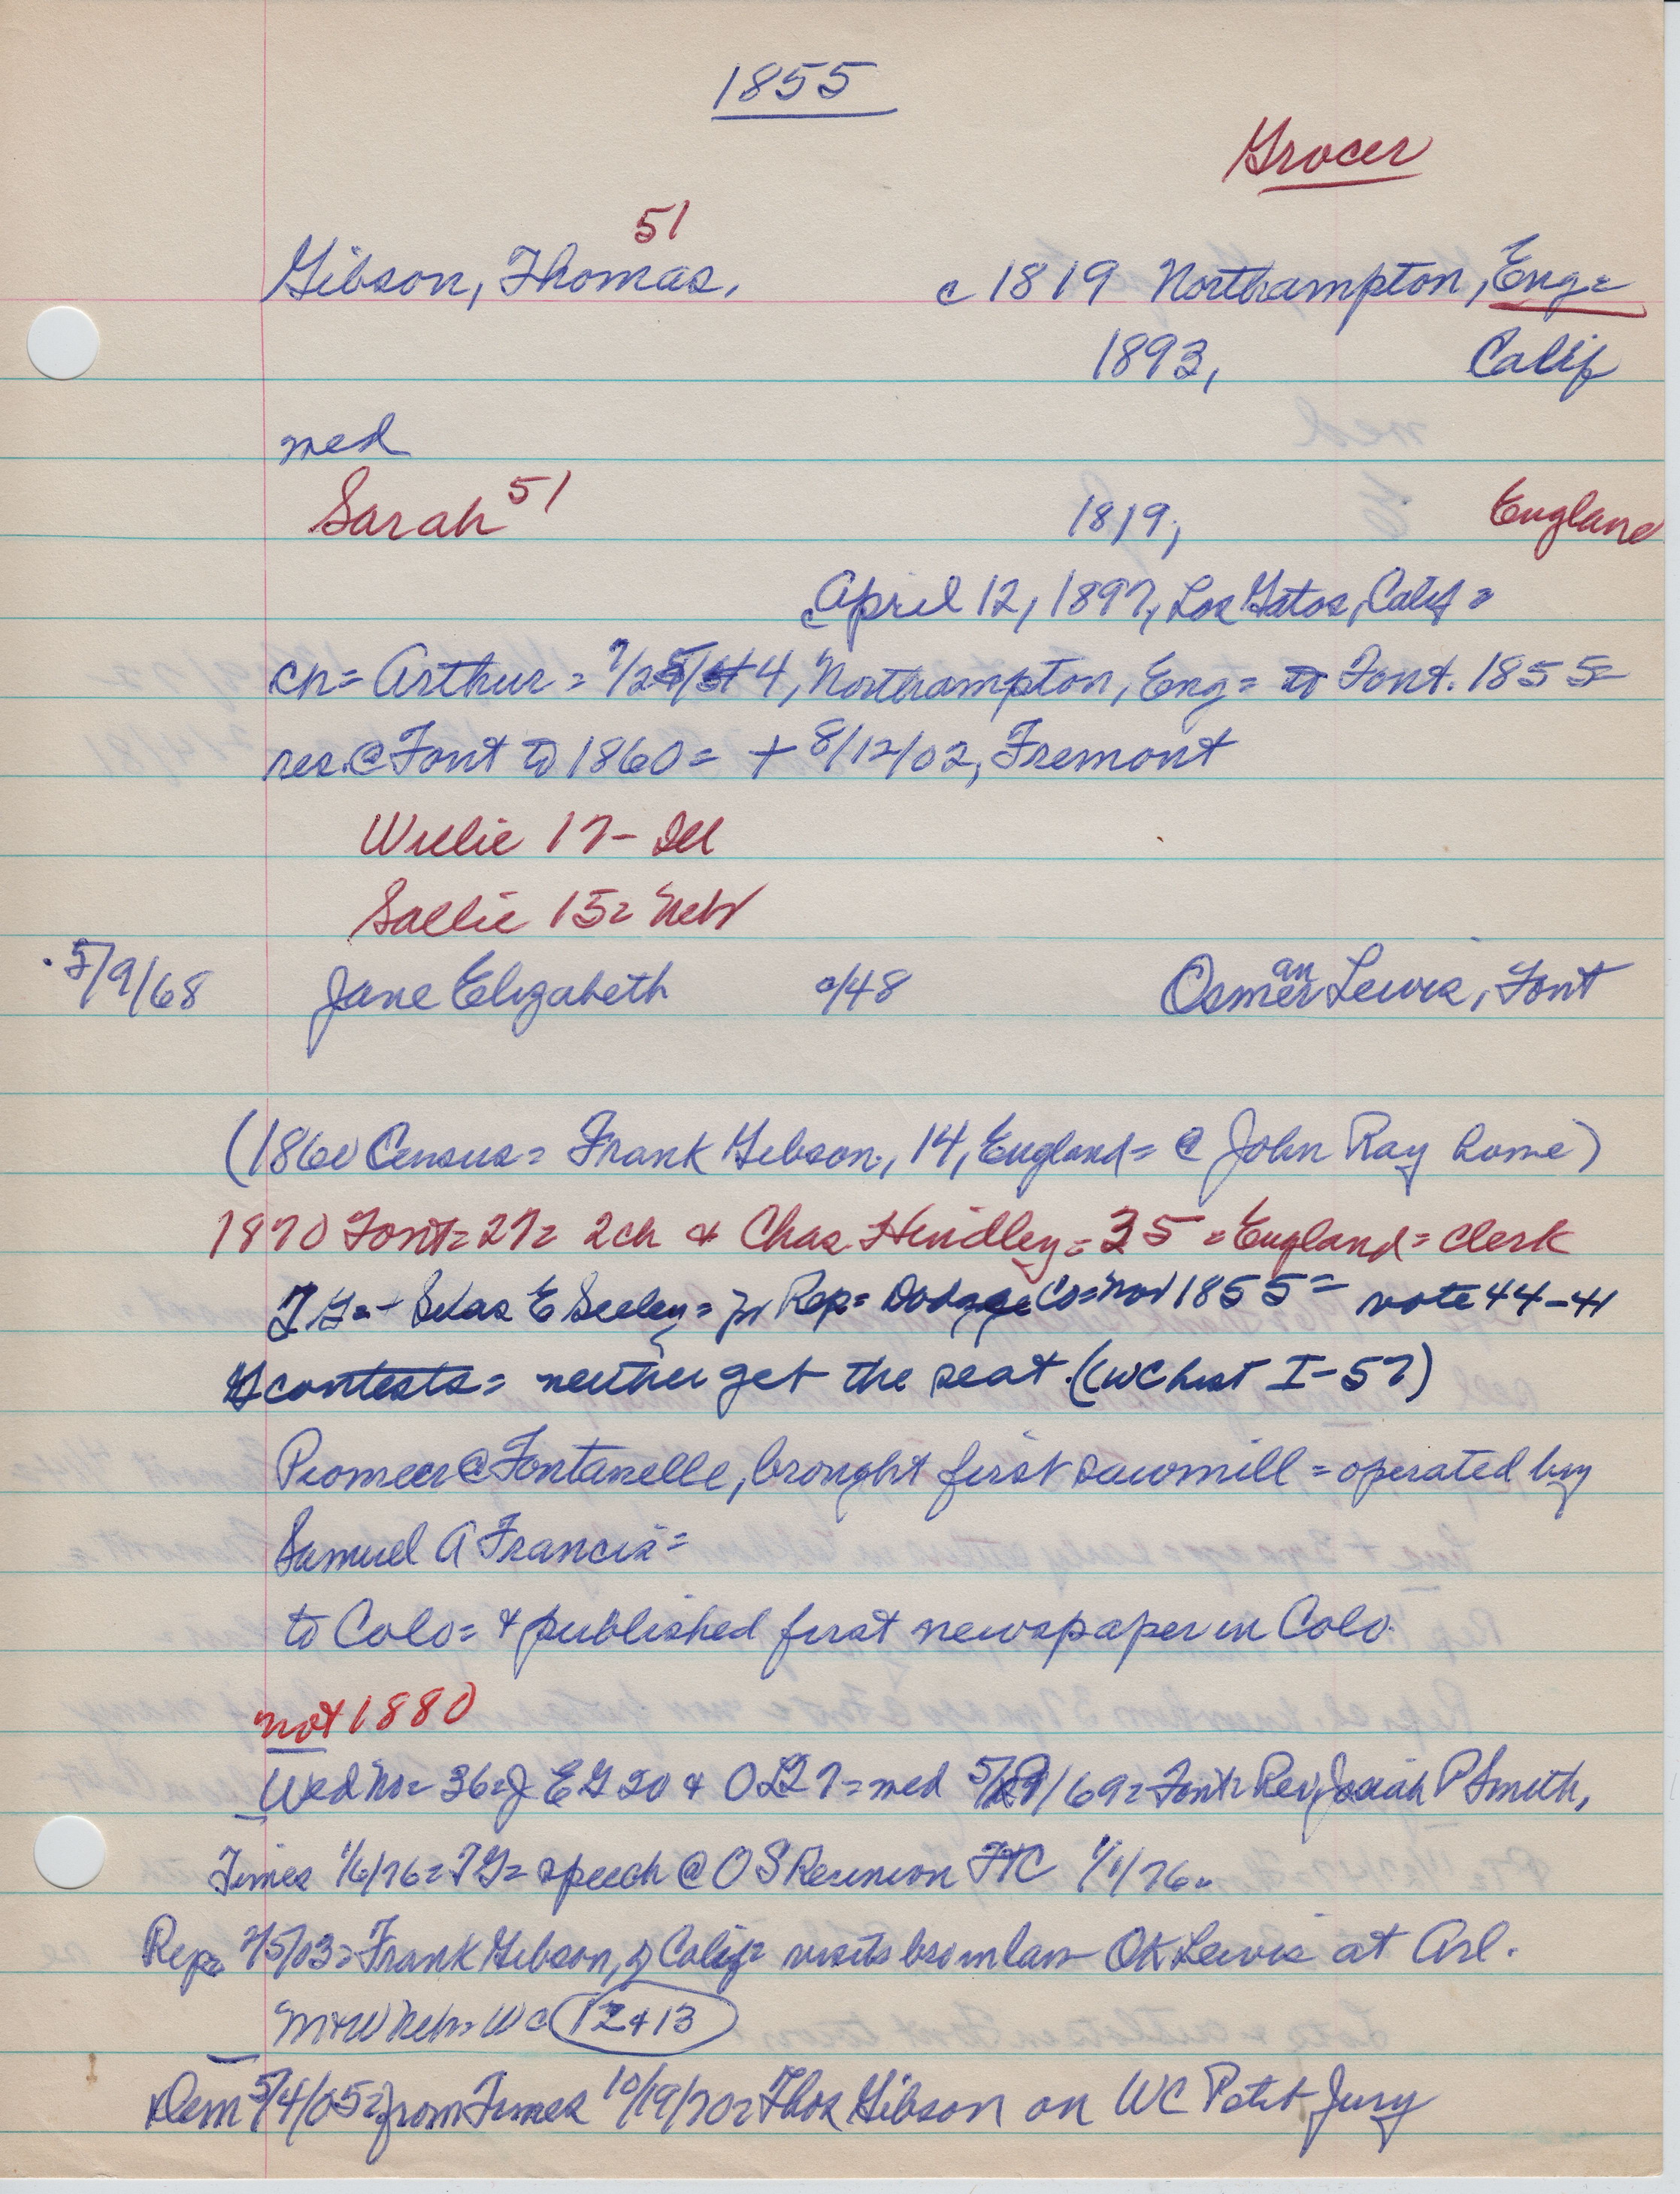 1855
Grocer
51
Gibson, Thomas, c 1819 Northampton, Eng=
1893, Calif
med
Sarah 51 1819, England
c April 12, 1897, Los Gatos, Calif=
cn= Arthur= 7/25/44, Northampton, Eng= to Font. 1855=
res. @ Font to 1860= + 8/12/02, Fremont
Willie 17- Ill
Sallie 15= Neb
5/9/68 Jane Elizabeth c/48 Osman Lewis, Font
(1860 Census= Frank Gibson, 14, England= @ John Ray home)
1870 Font= 27= 2ch & Chas. Hindley= 35= England= clerk
TG= - Silas E Seeley= for Rep= Dodge Co= Nov 1855= vote 44-41
G contests= neither get the seat. (WC hist I-57)
Pioneer @ Fontanelle, brought first sawmill= operated by
Samuel A Francis=
to Colo= & published first newspaper in Colo.
not 1880
Wed No= 36= J E G 20 & OL 27= med 5/9/69= Font= Rev Josiah P Smith,
Times 1/6/76= TG= speech @ OS Reunion FTC 1/1/76.
Rep= 2/5/03= Frank Gibson, of Calif= visits bro in law OK Lewis at Arl.
M&W Neb= WC 12 & 13
Dem 5/4/05= from Times 10/19/70= Thos Gibson on WC Petit Jury